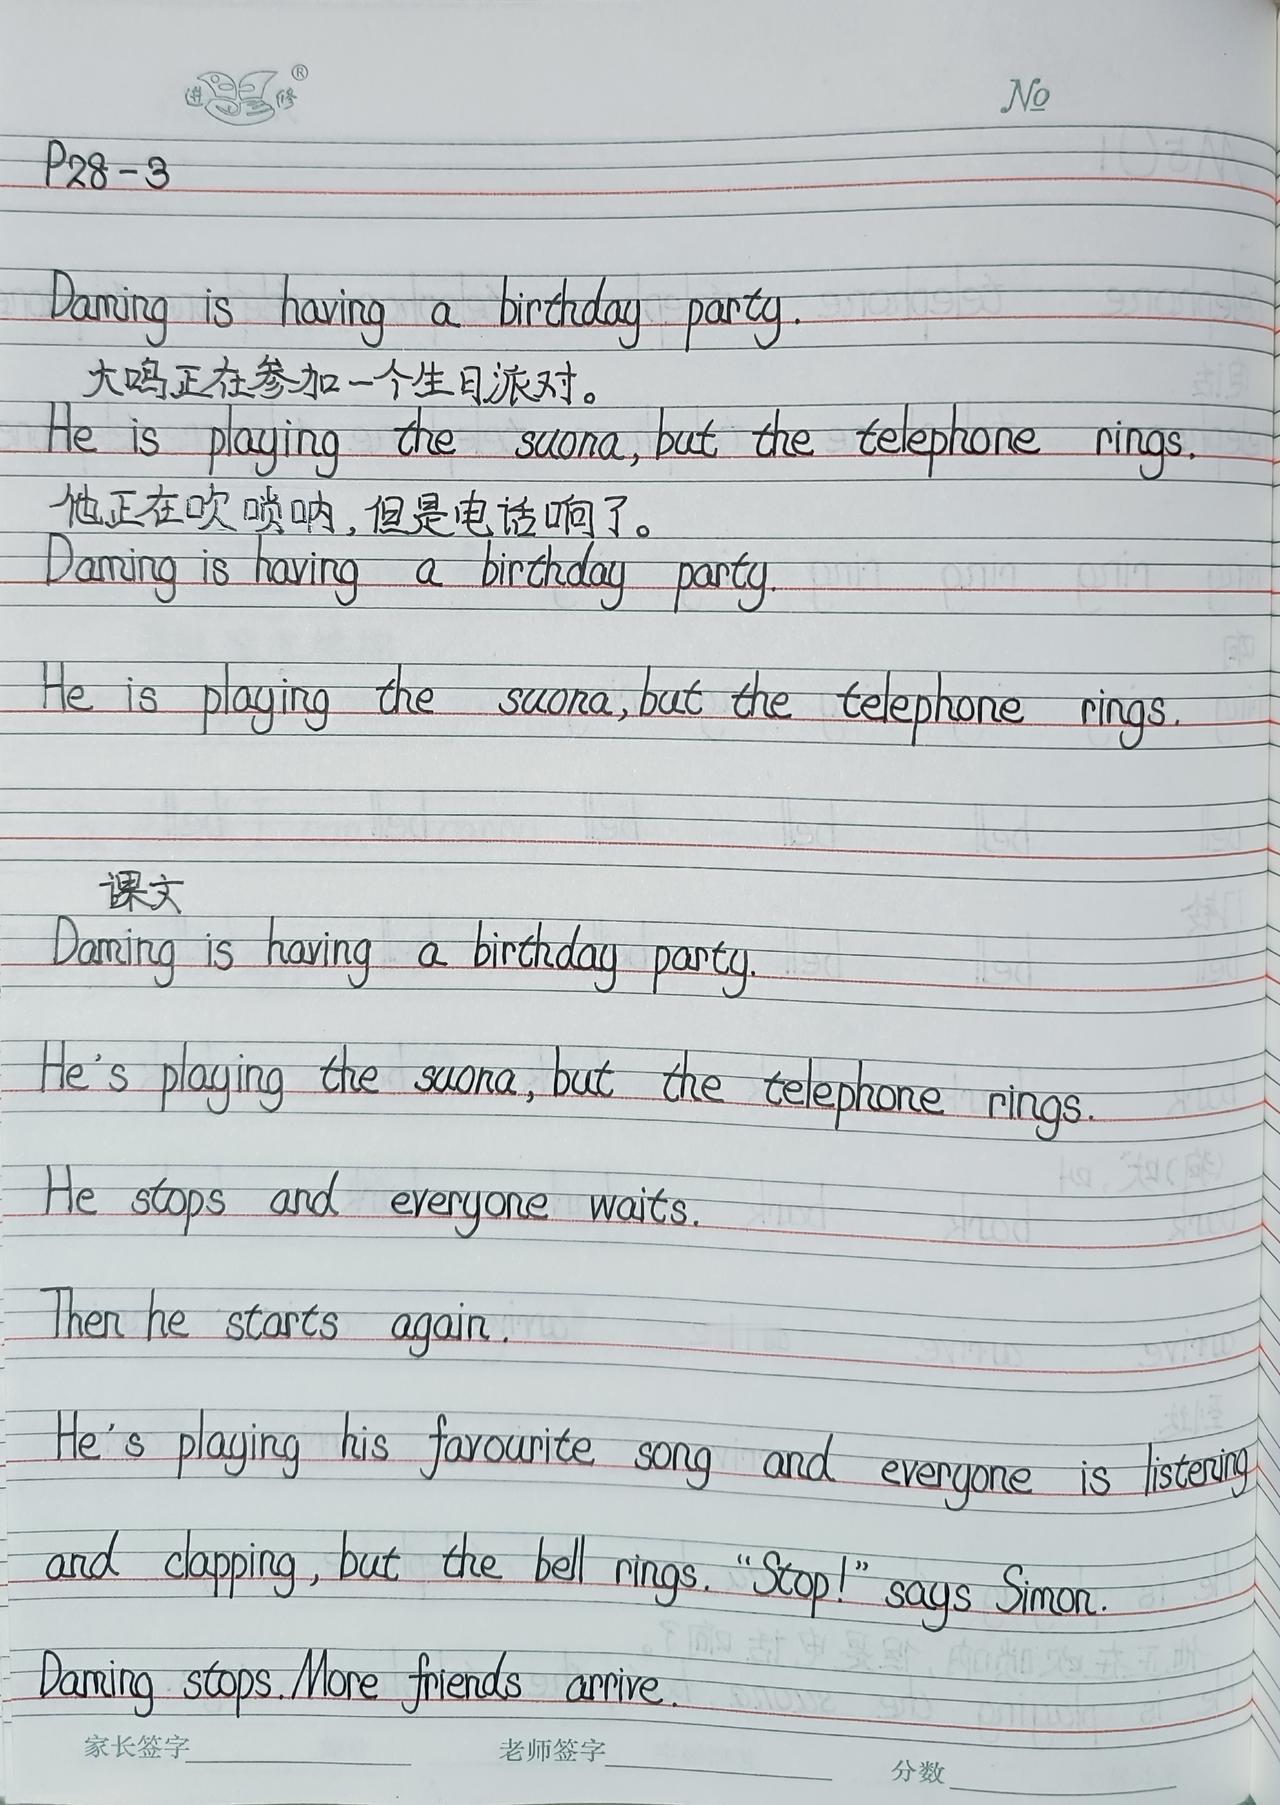 进修®
No
P28-3
Daming is having a birthday party.
大鸣正在参加一个生日派对。
He is playing the suona, but the telephone rings.
他正在吹唢呐,但是电话响了。
Daming is having a birthday party.
He is playing the suona, but the telephone rings.
课文
Daming is having a birthday party.
He's playing the suona, but the telephone rings.
He stops and everyone waits.
Then he starts again.
He's playing his favourite song and everyone is listening
and clapping, but the bell rings. "Stop!" says Simon.
Daming stops. More friends arrive.
家长签字 老师签字 分数